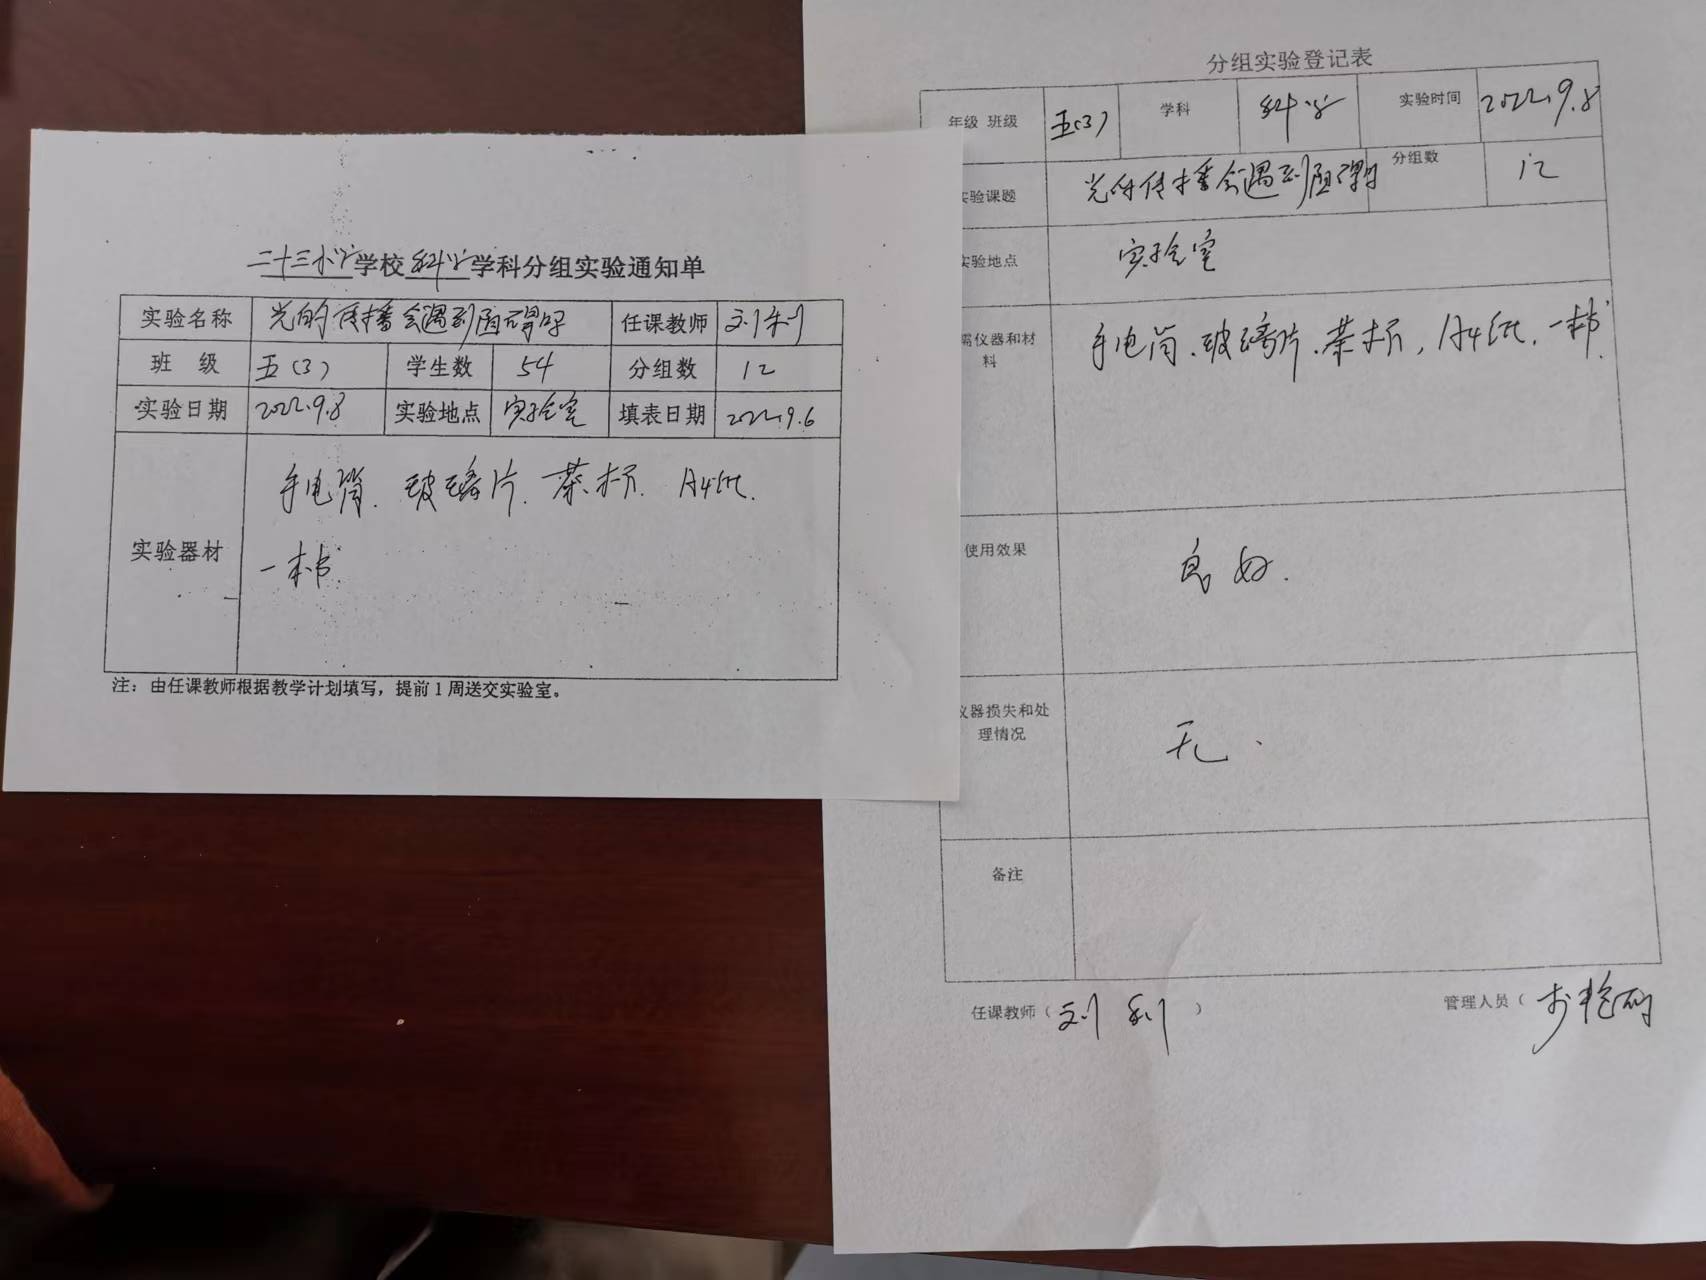 二十三小学学校科学学科分组实验通知单
实验名称 光的传播会遇到阻碍吗 任课教师 刘利
班 级 五(3) 学生数 54 分组数 12
实验日期 2022.9.8 实验地点 实验室 填表日期 2022.9.6
实验器材 手电筒、玻璃片、茶杯、A4纸、
一本书
注：由任课教师根据教学计划填写，提前1周送交实验室。
分组实验登记表
年级 班级 五(3) 学科 科学 实验时间 2022.9.8
实验课题 光的传播会遇到阻碍吗 分组数 12
实验地点 实验室
需仪器和材
料 手电筒、玻璃片、茶杯，A4纸、一本书
使用效果 良好.
仪器损失和处
理情况 无.
备注
任课教师（刘利）
管理人员（